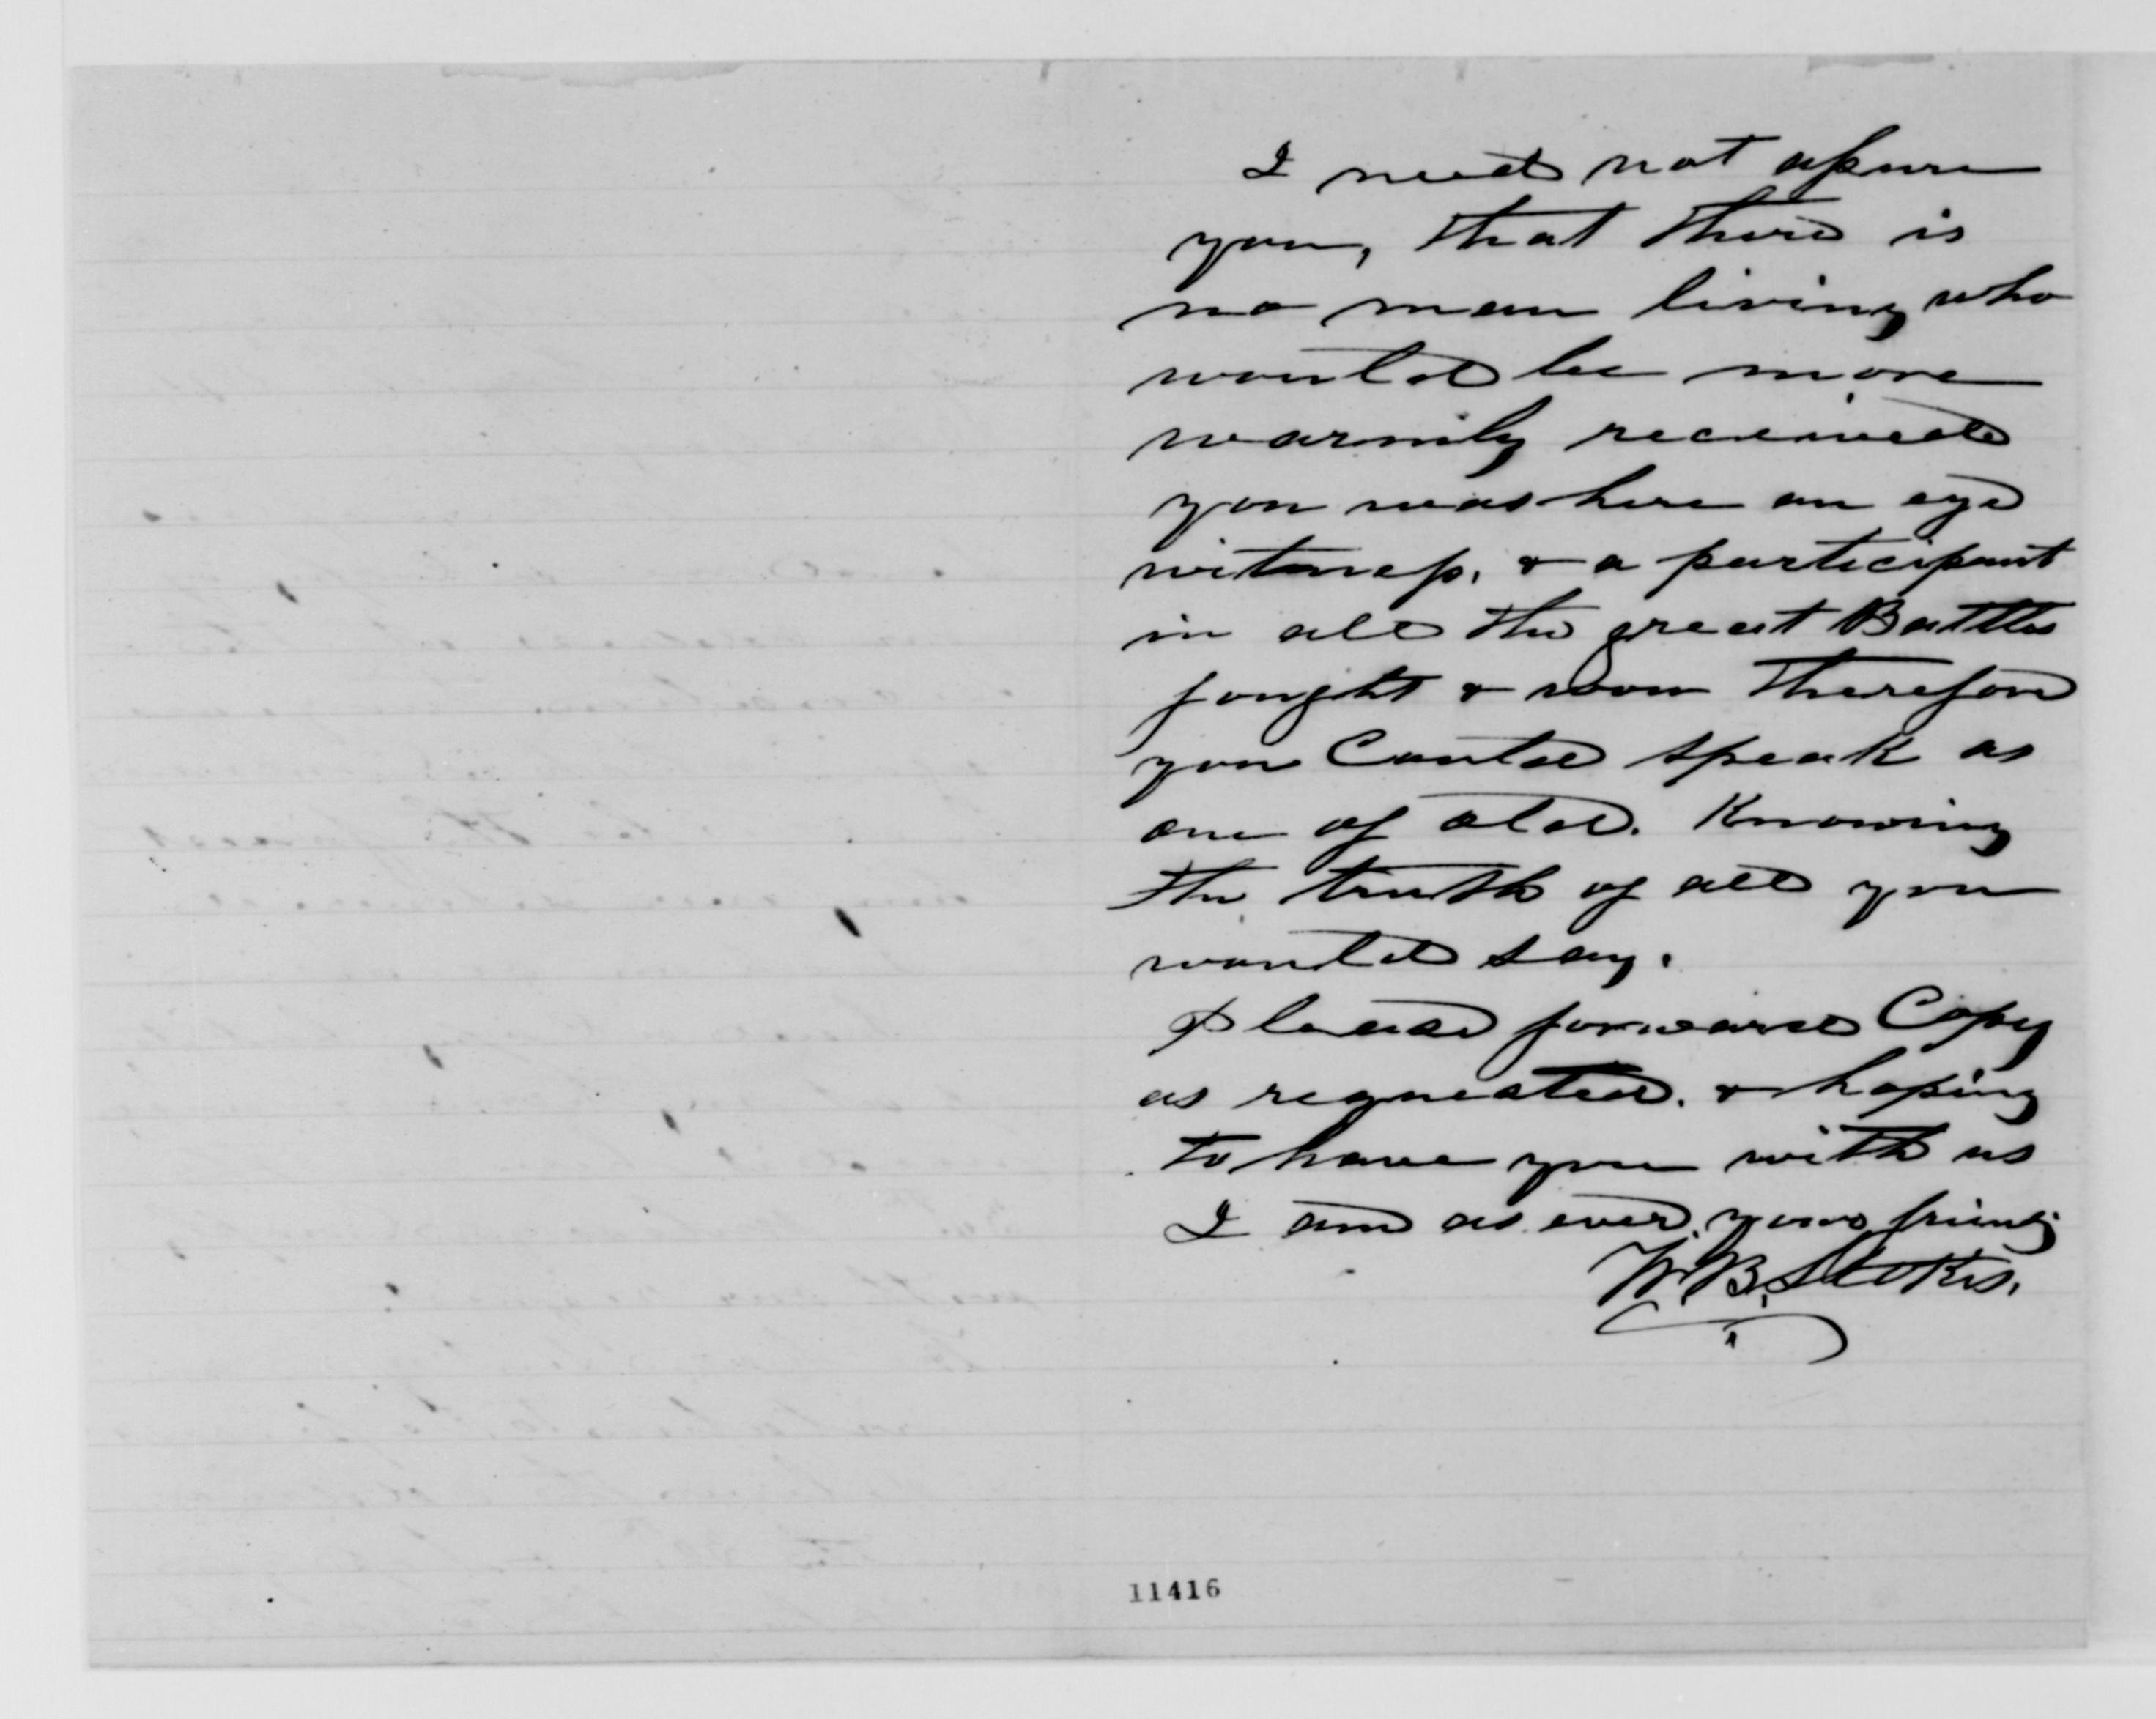 I need not assure
you, that there is
no man living who
would be more
warmily received
you was here an eye
witness, & a participant
in all the great Battles
fought & won therefore
you Could speak as
one of old. Knowing
the truth of all you
would say.
Please forward Copy
as requested. & hoping
to have you with us
I am as ever, yours friendly
W. B. Stokes.
11416